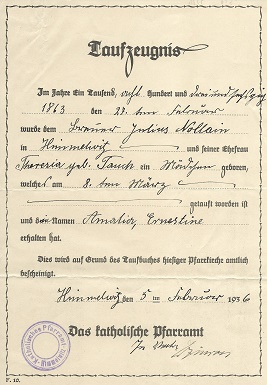 Taufzeugnis
Im Jahre Ein Tausend, acht Hundert und dreiundsechzig
1863 den 27. ten Februar
wurde dem Brauer Julius Nollain
in Himmelwitz und seiner Ehefrau
Theresia geb. Tauch ein Mädchen geboren,
welches am 8. ten März
getauft worden ist
und den Namen Amalia, Ernestine
erhalten hat.
Dies wird auf Grund des Taufbuches hiesiger Pfarrkirche amtlich
bescheinigt.
Himmelwitz den 5 ten Februar 1936
Das katholische Pfarramt
Katholisches Pfarramt
F. 10.